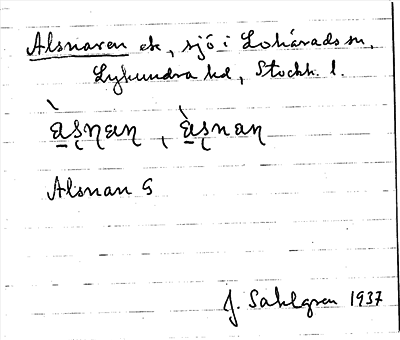 Alsnaren ek, sjö i Lohärads sn,
Lyhundra hd, Stockh. l.
Alsnan G
J. Sahlgren 1937